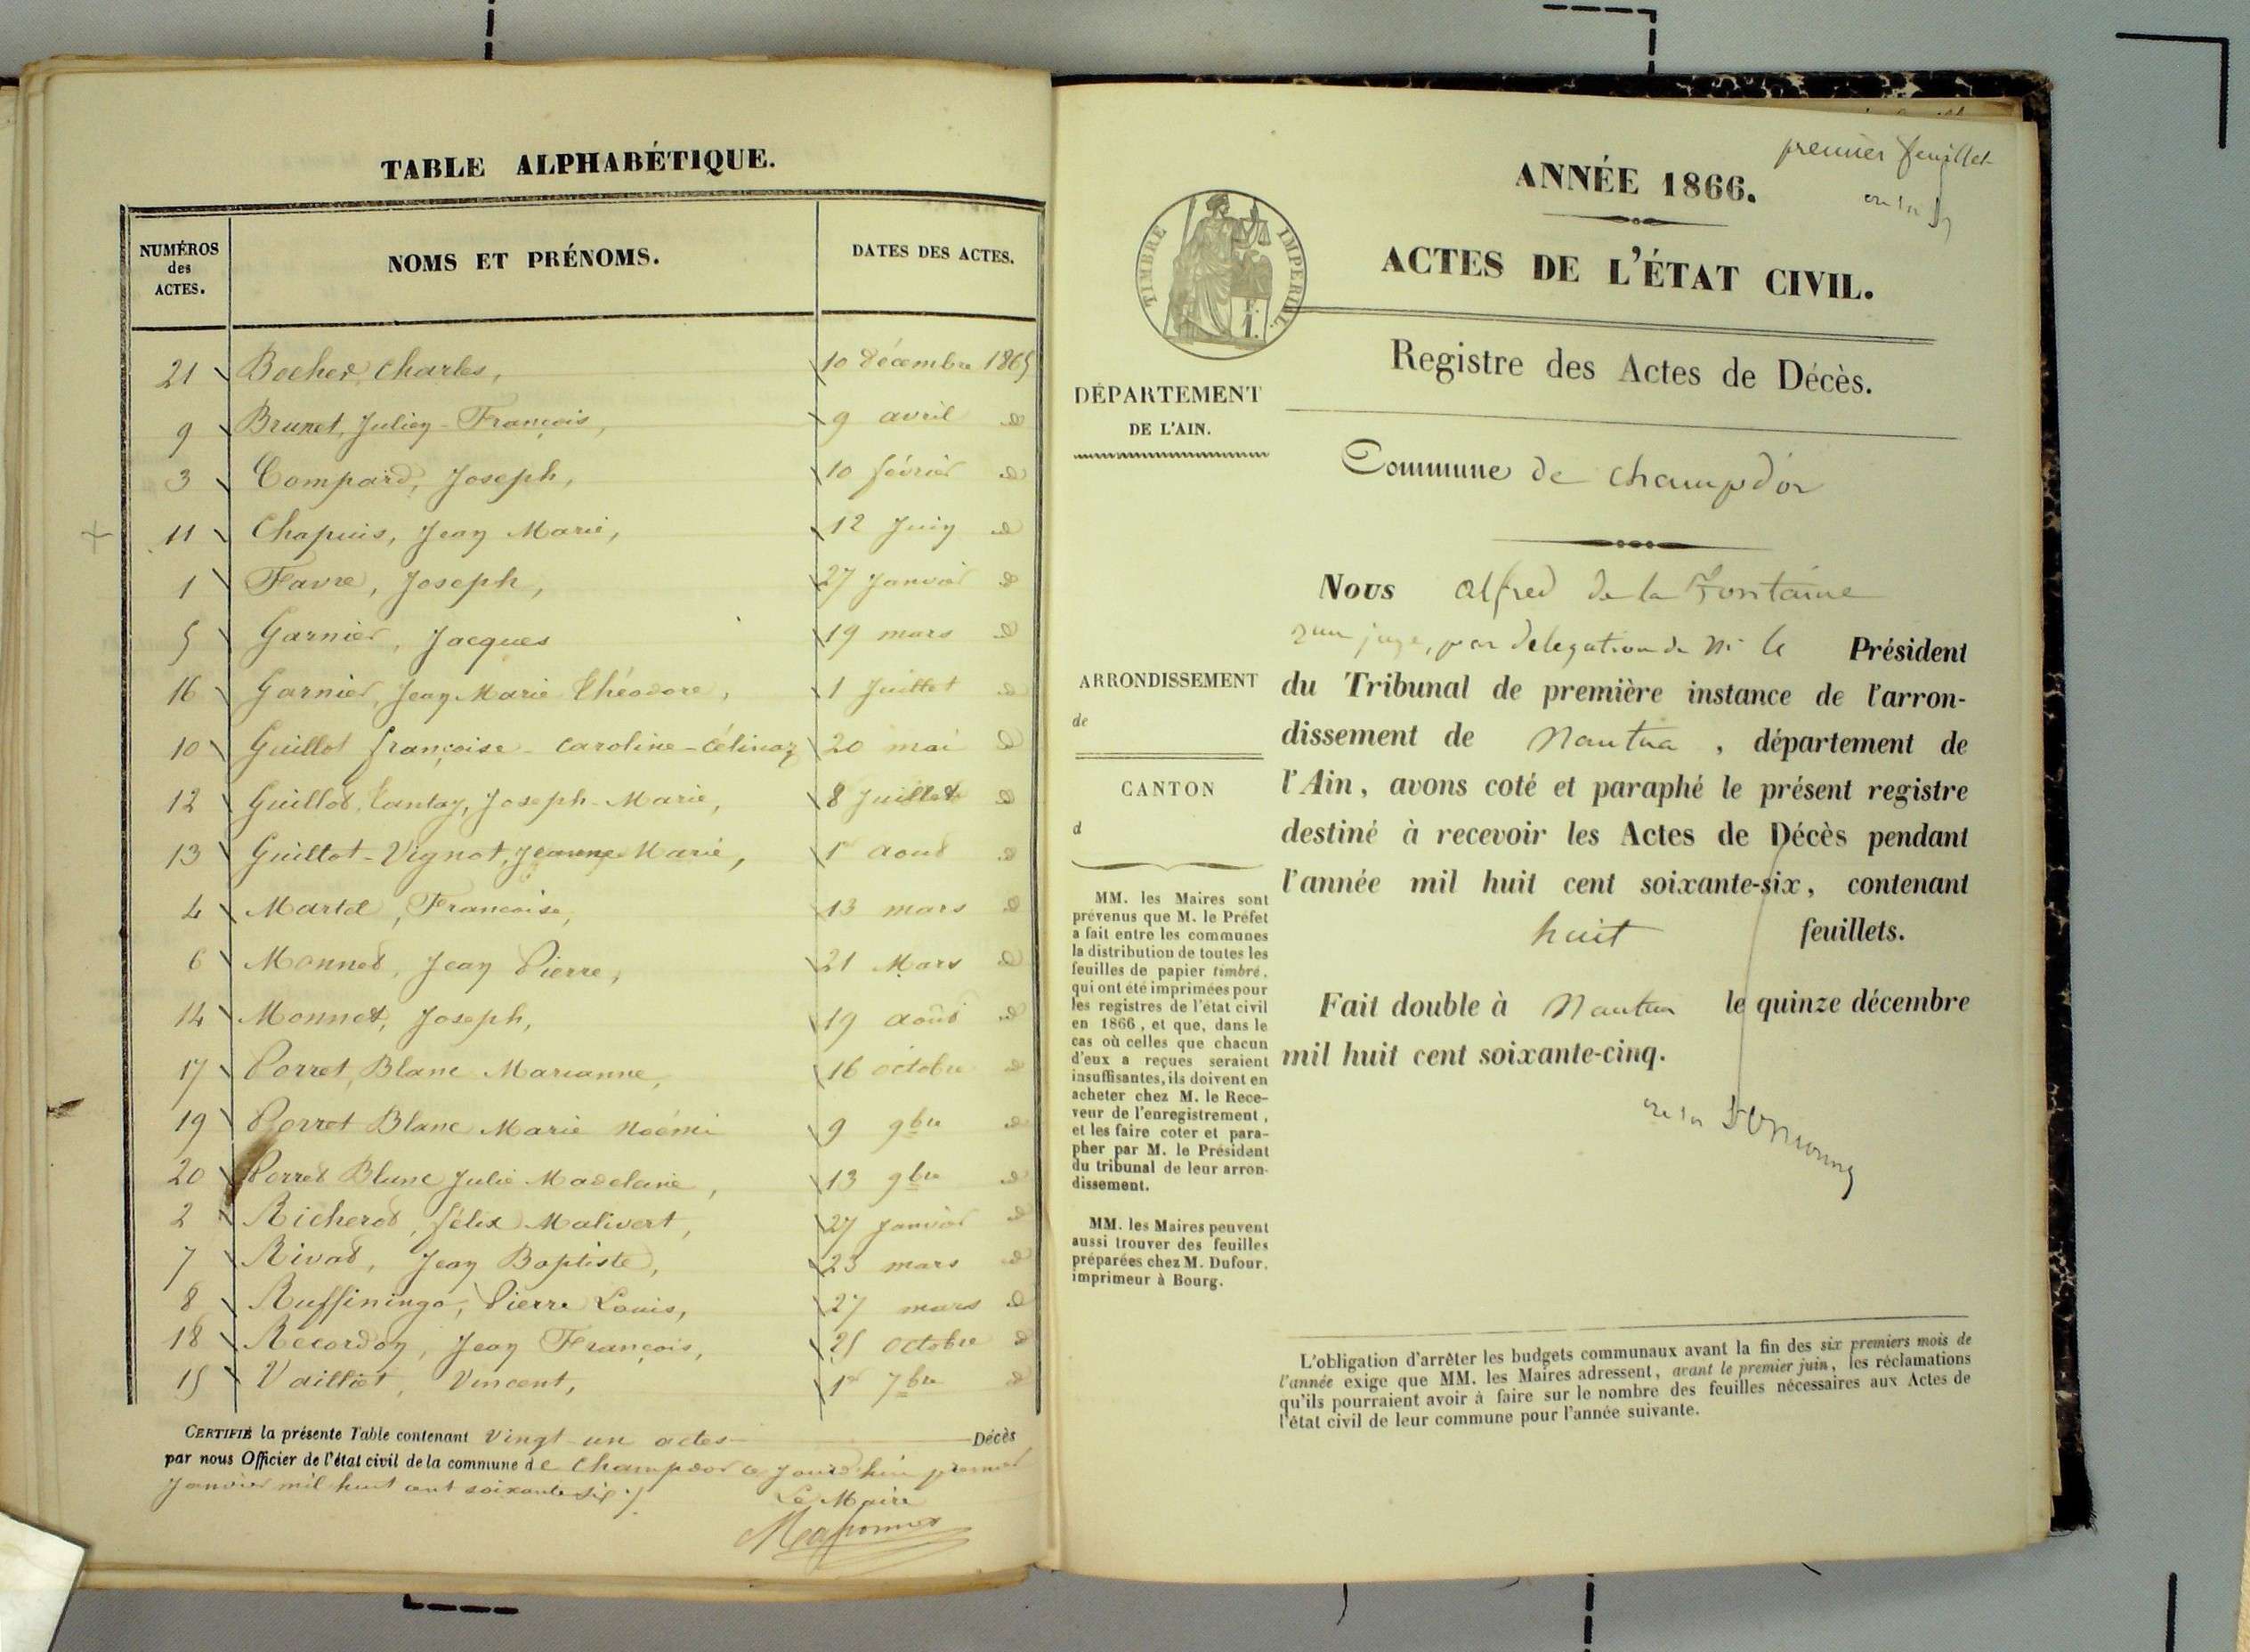 TABLE ALPHABÉTIQUE.
NUMÉROS des ACTES.
NOMS ET PRÉNOMS.
DATES DES ACTES.
21 Bocher, Charles, 10 décembre 1865
9 Brunet, Julien-François, 9 avril d
3 Compard, Joseph, 10 février d
11 Chapuis, Jean Marie, 12 Juin d
1 Favre, Joseph, 27 Janvier d
5 Garnier, Jacques 19 mars d
16 Garnier, Jean Marie Théodore, 1 Juillet d
10 Guillot françoise-caroline-Célina 20 mai d
12 Guillot, Tantay, Joseph-Marie, 8 Juillet d
13 Guillot-Vignot, Jeanne Marie, 1r aout d
4 Martel, Francoise, 13 mars d
6 Monnet, Jean Pierre, 21 Mars d
14 Monnet, Joseph, 19 août d
17 Porret, Blanc Marianne, 16 octobre d
19 Porret Blanc Marie Noémi 9 9bre d
20 Porret Blanc Julie Madelaine, 13 9bre d
2 Richerot, félix Malivert, 27 Janvier d
7 Rivat, Jean Baptiste, 23 mars d
8 Ruffiningo, Pierre Louis, 27 mars d
18 Recordon, Jean François, 25 octobre d
15 Vailliet, Vincent, 1er 7bre d
CERTIFIÉ la présente Table contenant Vingt-un actes Décès
par nous Officier de l'état civil de la commune de Champdor ce jourd'hui premier
Janvier mil huit cent soixante-six ./.
Le Maire
premier feuillet
ANNÉE 1866.
ACTES DE L'ÉTAT CIVIL.
TIMBRE IMPÉRIAL.
Registre des Actes de Décès.
DÉPARTEMENT
DE L'AIN.
Commune de champdor
Nous Alfred de la Fontaine
juge, par délégation de Mr le Président
du Tribunal de première instance de l'arron-
dissement de Nantua, département de
l'Ain, avons coté et paraphé le présent registre
destiné à recevoir les Actes de Décès pendant
l'année mil huit cent soixante-six, contenant
huit feuillets.
Fait double à Nantua le quinze décembre
mil huit cent soixante-cinq.
ARRONDISSEMENT
de
CANTON
d
MM. les Maires sont
prévenus que M. le Préfet
a fait entre les communes
la distribution de toutes les
feuilles de papier timbré,
qui ont été imprimées pour
les registres de l'état civil
en 1866, et que, dans le
cas où celles que chacun
d'eux a reçues seraient
insuffisantes, ils doivent en
acheter chez M. le Rece-
veur de l'enregistrement,
et les faire coter et para-
pher par M. le Président
du tribunal de leur arron-
dissement.
MM. les Maires peuvent
aussi trouver des feuilles
préparées chez M. Dufour,
imprimeur à Bourg.
L'obligation d'arrêter les budgets communaux avant la fin des six premiers mois de
l'année exige que MM. les Maires adressent, avant le premier juin, les réclamations
qu'ils pourraient avoir à faire sur le nombre des feuilles nécessaires aux Actes de
l'état civil de leur commune pour l'année suivante.